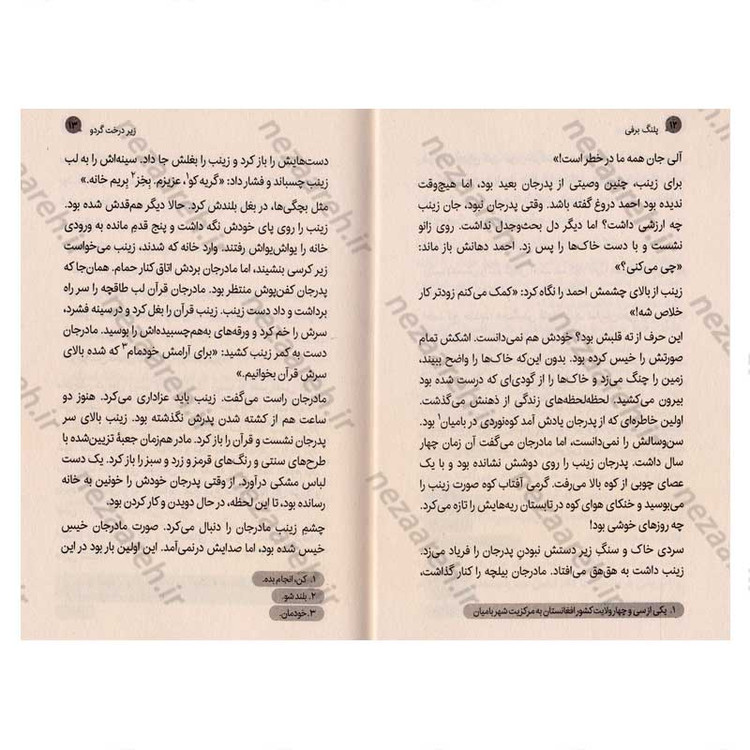 ۱۲ پلنگ برفی
آلی جان همه ما در خطر است!»
برای زینب، چنین وصیتی از پدرجان بعید بود، اما هیچ‌وقت
ندیده بود احمد دروغ گفته باشد. وقتی پدرجان نبود، جان زینب
چه ارزشی داشت؟ اما دیگر دل بحث‌وجدل نداشت. روی زانو
نشست و با دست خاک‌ها را پس زد. احمد دهانش باز ماند:
«چی می‌کنی؟»
زینب از بالای چشمش احمد را نگاه کرد: «کمک می‌کنم زودتر کار
خلاص شه!»
این حرف از ته قلبش بود؟ خودش هم نمی‌دانست. اشکش تمام
صورتش را خیس کرده بود. بدون این‌که خاک‌ها را واضح ببیند،
زمین را چنگ می‌زد و خاک‌ها را از گودی‌ای که درست شده بود
بیرون می‌کشید. لحظه‌لحظه‌های زندگی از ذهنش می‌گذشت.
اولین خاطره‌ای که از پدرجان یادش آمد کوه‌نوردی در بامیان۱ بود.
سن‌وسالش را نمی‌دانست، اما مادرجان می‌گفت آن زمان چهار
سال داشت. پدرجان زینب را روی دوشش نشانده بود و با یک
عصای چوبی از کوه بالا می‌رفت. گرمی آفتاب کوه صورت زینب را
می‌بوسید و خنکای هوای کوه در تابستان ریه‌هایش را تازه می‌کرد.
چه روزهای خوشی بود!
سردی خاک و سنگِ زیر دستش نبودنِ پدرجان را فریاد می‌زد.
زینب دست به هق‌هق می‌افتاد. مادرجان بیلچه را کنار گذاشت،
۱. یکی از سی و چهار ولایت کشور افغانستان به مرکزیت شهر بامیان
زیر درخت گردو ۱۳
دست‌هایش را باز کرد و زینب را بغلش جا داد. سینه‌اش را به لب
زینب چسباند و فشار داد: «گریه کو۱، عزیزم. بِخِز۲ بریم خانه.»
مثل بچگی‌ها، در بغل بلندش کرد. حالا دیگر هم‌قدش شده بود.
زینب را روی پای خودش نگه داشت و پنج قدمِ مانده به ورودی
خانه را یواش‌یواش رفتند. وارد خانه که شدند، زینب می‌خواست
زیر کرسی بنشیند، اما مادرجان بردش اتاق کنار حمام. همان‌جا که
پدرجان کفن‌پوش منتظر بود. مادرجان قرآن لب طاقچه را سر راه
برداشت و داد دست زینب. زینب قرآن را بغل کرد و در سینه فشرد،
سرش را خم کرد و ورقه‌های به‌هم‌چسبیده‌اش را بوسید. مادرجان
دست به کمر زینب کشید: «برای آرامش خودمام۳ که شده بالای
سرش قرآن بخوانیم.»
مادرجان راست می‌گفت. زینب باید عزاداری می‌کرد. هنوز دو
ساعت هم از کشته شدن پدرش نگذشته بود. زینب بالای سر
پدرجان نشست و قرآن را باز کرد. مادر هم‌زمان جعبهٔ تزیین‌شده با
طرح‌های سنتی و رنگ‌های قرمز و زرد و سبز را باز کرد. یک دست
لباس مشکی درآورد. از وقتی پدرجان خودش را خونین به خانه
رسانده بود، تا این لحظه، در حال دویدن و کار کردن بود.
چشمِ زینب مادرجان را دنبال می‌کرد. صورت مادرجان خیس
خیس شده بود، اما صدایش درنمی‌آمد. این اولین بار بود در این
۱. کن، انجام بده.
۲. بلند شو.
۳. خودمان.
nezaareh.ir